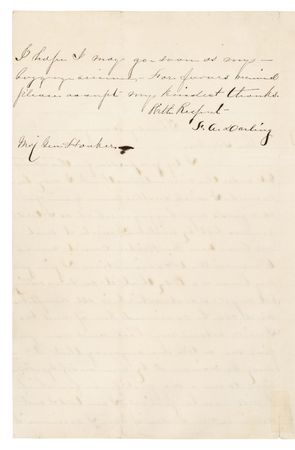 I hope I may go soon as my
baggage arrives. For favors
please accept my kindest thanks.
With Respect
F. A. Darling
Maj Gen Hooker